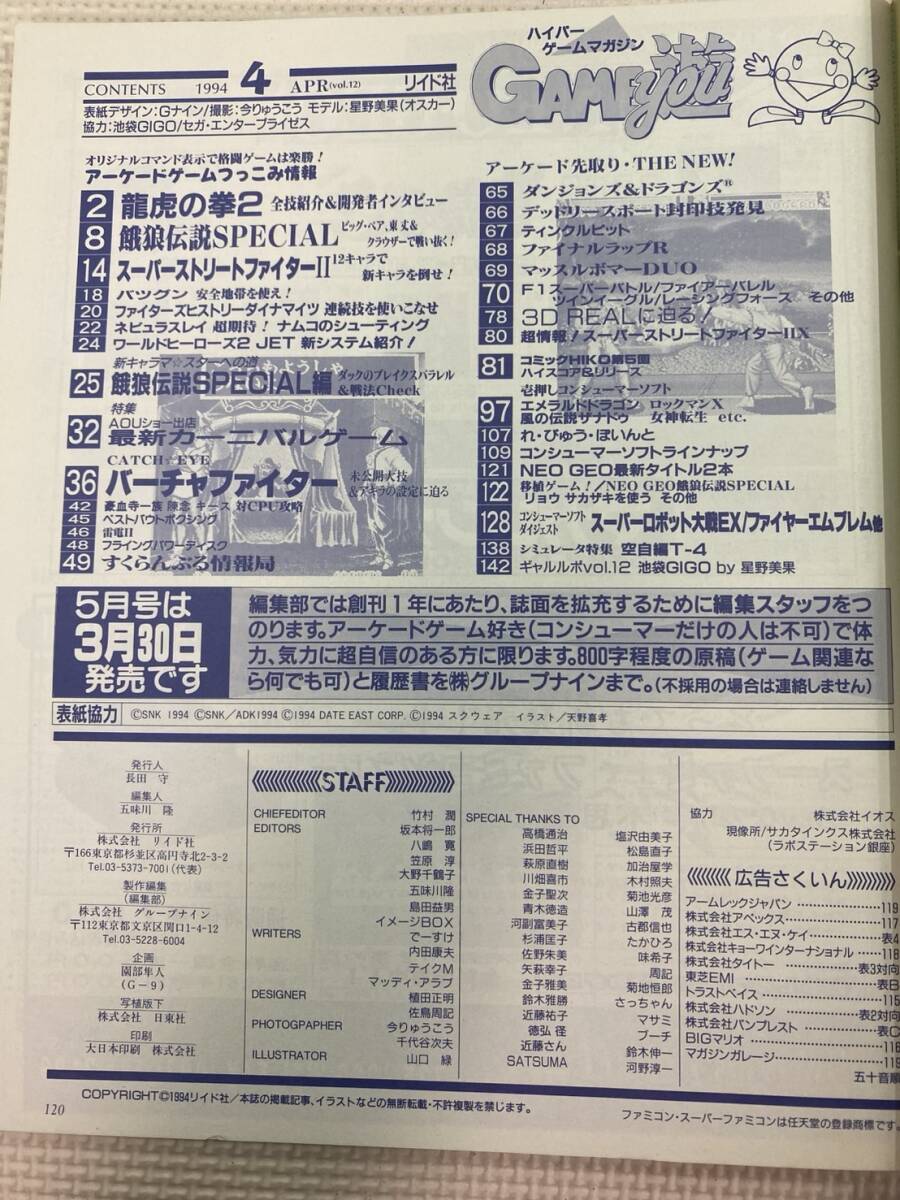 CONTENTS 1994 4 APR(vol.12) リイド社
表紙デザイン:Gナイン/撮影:今りゅうこう モデル:星野美果(オスカー)
協力:池袋GIGO/セガ・エンタープライゼス
ハイパー
ゲームマガジン
GAME遊you
オリジナルコマンド表示で格闘ゲームは楽勝!
アーケードゲームつっこみ情報
2 龍虎の拳2 全技紹介&開発者インタビュー
8 餓狼伝説SPECIAL ビッグ・ベア、東丈&
クラウザーで戦い抜く!
14 スーパーストリートファイターII 12キャラで
新キャラを倒せ!
18 バツグン 安全地帯を使え!
20 ファイターズヒストリーダイナマイツ 連続技を使いこなせ
22 ネビュラスレイ 超期待! ナムコのシューティング
24 ワールドヒーローズ2 JET 新システム紹介!
新キャラマ☆スターへの道
25 餓狼伝説SPECIAL編 ダックのブレイクスパラレル
&戦法Check
特集
AOUショー出店
32 最新カーニバルゲーム
CATCH☆EYE
36 バーチャファイター 未公開大技
&アキラの設定に迫る
42 豪血寺一族 陳念 キース 対CPU攻略
45 ベストバウトボクシング
46 雷電II
48 フライングパワーディスク
49 すくらんぶる情報局
アーケード先取り・THE NEW!
65 ダンジョンズ&ドラゴンズ®
66 デッドリースポート封印技発見
67 ティンクルピット
68 ファイナルラップR
69 マッスルボマーDUO
70 F1スーパーバトル/ファイアーバレル
ツインイーグル/レーシングフォース その他
78 3D REALに迫る!
80 超情報! スーパーストリートファイターIIX
81 コミックHIKO第5回
ハイスコア&リリーズ
壱押しコンシューマーソフト
97 エメラルドドラゴン ロックマンX
風の伝説ザナドゥ 女神転生 etc.
107 れ・びゅう・ぽいんと
109 コンシューマーソフトラインナップ
121 NEO GEO最新タイトル2本
122 移植ゲーム!/NEO GEO餓狼伝説SPECIAL
リョウ サカザキを使う その他
128 コンシューマーソフト
ダイジェスト スーパーロボット大戦EX/ファイヤーエムブレム他
138 シミュレータ特集 空自編T-4
142 ギャルルポvol.12 池袋GIGO by 星野美果
5月号は
3月30日
発売です
編集部では創刊1年にあたり、誌面を拡充するために編集スタッフをつ
のります。アーケードゲーム好き(コンシューマーだけの人は不可)で体
力、気力に超自信のある方に限ります。800字程度の原稿(ゲーム関連な
ら何でも可)と履歴書を㈱グループナインまで。(不採用の場合は連絡しません)
表紙協力 ©SNK 1994 ©SNK/ADK1994 ©1994 DATE EAST CORP. ©1994 スクウェア イラスト/天野喜孝
発行人
長田 守
編集人
五味川 隆
発行所
株式会社 リイド社
〒166東京都杉並区高円寺北2-3-2
Tel.03-5373-7001(代表)
製作編集
(編集部)
株式会社 グループナイン
〒112東京都文京区関口1-4-12
Tel.03-5228-6004
企画
園部隼人
(G-9)
写植版下
株式会社 日東社
印刷
大日本印刷 株式会社
STAFF
CHIEFEDITOR 竹村 潤
EDITORS 坂本将一郎
八嶋 寛
笠原 淳
大野千鶴子
五味川隆
島田益男
イメージBOX
WRITERS でーすけ
内田康夫
テイクM
マッディ・アラブ
DESIGNER 植田正明
佐鳥周記
PHOTOGPAPHER 今りゅうこう
千代谷次夫
ILLUSTRATOR 山口 緑
SPECIAL THANKS TO
高橋通治
浜田哲平
萩原直樹
川畑喜市
金子聖次
青木徳造
河副富美子
杉浦匡子
佐野朱美
矢萩幸子
金子雅美
鈴木雅勝
近藤祐子
徳弘 径
近藤さん
SATSUMA
塩沢由美子
松島直子
加治屋学
木村照夫
菊池光彦
山澤 茂
古郡信也
たかひろ
味希子
周記
菊地恒郎
さっちゃん
マサミ
ブーチ
鈴木伸一
河野淳一
協力 株式会社イオス
現像所/サカタインクス株式会社
(ラボステーション銀座)
広告さくいん
アームレックジャパン 119
株式会社アペックス 117
株式会社エス・エヌ・ケイ 表4
株式会社キョーワインターナショナル 118
株式会社タイトー 表3対向
東芝EMI 表B
トラストベイス 115
株式会社ハドソン 表2対向
株式会社バンプレスト 表C
BIGマリオ 116
マガジンガレージ 119
五十音順
COPYRIGHT©1994リイド社/本誌の掲載記事、イラストなどの無断転載・不許複製を禁じます。
120
ファミコン・スーパーファミコンは任天堂の登録商標です。